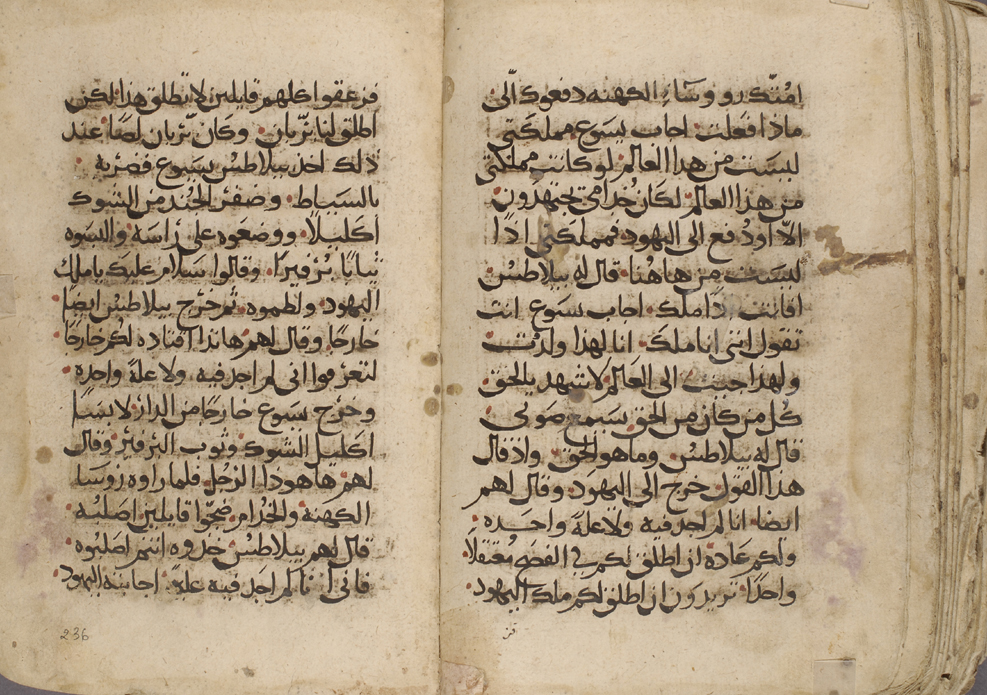 امتك رووسآء الكهنه دفعوك الّى
ماذا فعلت اجاب يسوع مملكتى
ليست من هذا العالم لو كانت مملكتى
من هذا العالم لكان خدامى يجتهدون
الّا اودفع الى اليهود فمملكتى اذًا
ليست من هاهنا قال له بيلاطس
افانت ذا ملك اجاب يسوع انت
تقول اننى انا ملك انا لهذا ولدت
ولهذا جيت الى العالم لاشهد بالحق
كل من كان من الحق يسمع صوتى
قال له بيلاطس وما هو الحق واذ قال
هذا القول خرج الى اليهود وقال لهم
ايضا انا لم اجد فيه ولا علة واحده
ولكم عادة ان اطلق لكم فى الفصح معتقلًا
واحدًا تريدون ان اطلق لكم ملك اليهود
فزعقوا كلهم قايلين لا تطلق هذا لكن
اطلق لنا برّبان وكان برّبان لصًا عند
ذلك اخذ بيلاطس يسوع فضربه
بالسياط وضفر الجند من الشوك
اكليلًا ووضعوه على راسه والبسوه
ثيابًا برفيرًا وقالوا سلام عليك يا ملك
اليهود ولطموه ثم خرج بيلاطس ايضا
خارجًا وقال لهم هاندا اقتاده لكم خارجًا
لتعرفوا انى لم اجد فيه ولا علة واحده
وخرج يسوع خارجًا من الدار لابسًا
اكليل الشوك وثوب البرفير وقال
لهم ها هوذا الرجل فلما راوه روسا
الكهنة والخدام ضجّوا قايلين اصلبه
قال لهم بيلاطس خذوه انتم اصلبوه
فانى انا لم اجد فيه علة اجابته اليهود
236